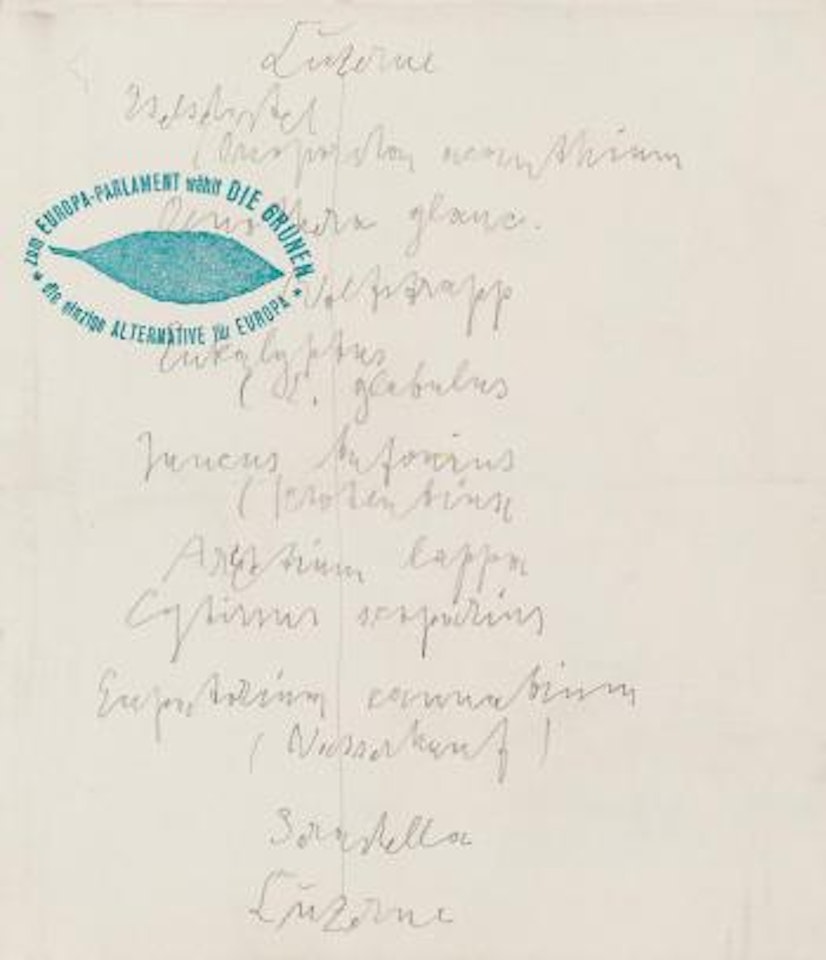 Luzerne
Eselsdistel
(Onopordon acanthium
zum EUROPA-PARLAMENT wählt DIE GRÜNEN
Oenothera glauc.
Wolfstrapp
* die einzige ALTERNATIVE für EUROPA *
Eukalyptus
( E. globulus
Juncus bufonius
( Krötenbinse
Arctium lappa
Cytisus scoparius
Eupatorium cannabinum
( Wasserhanf )
Luzerne